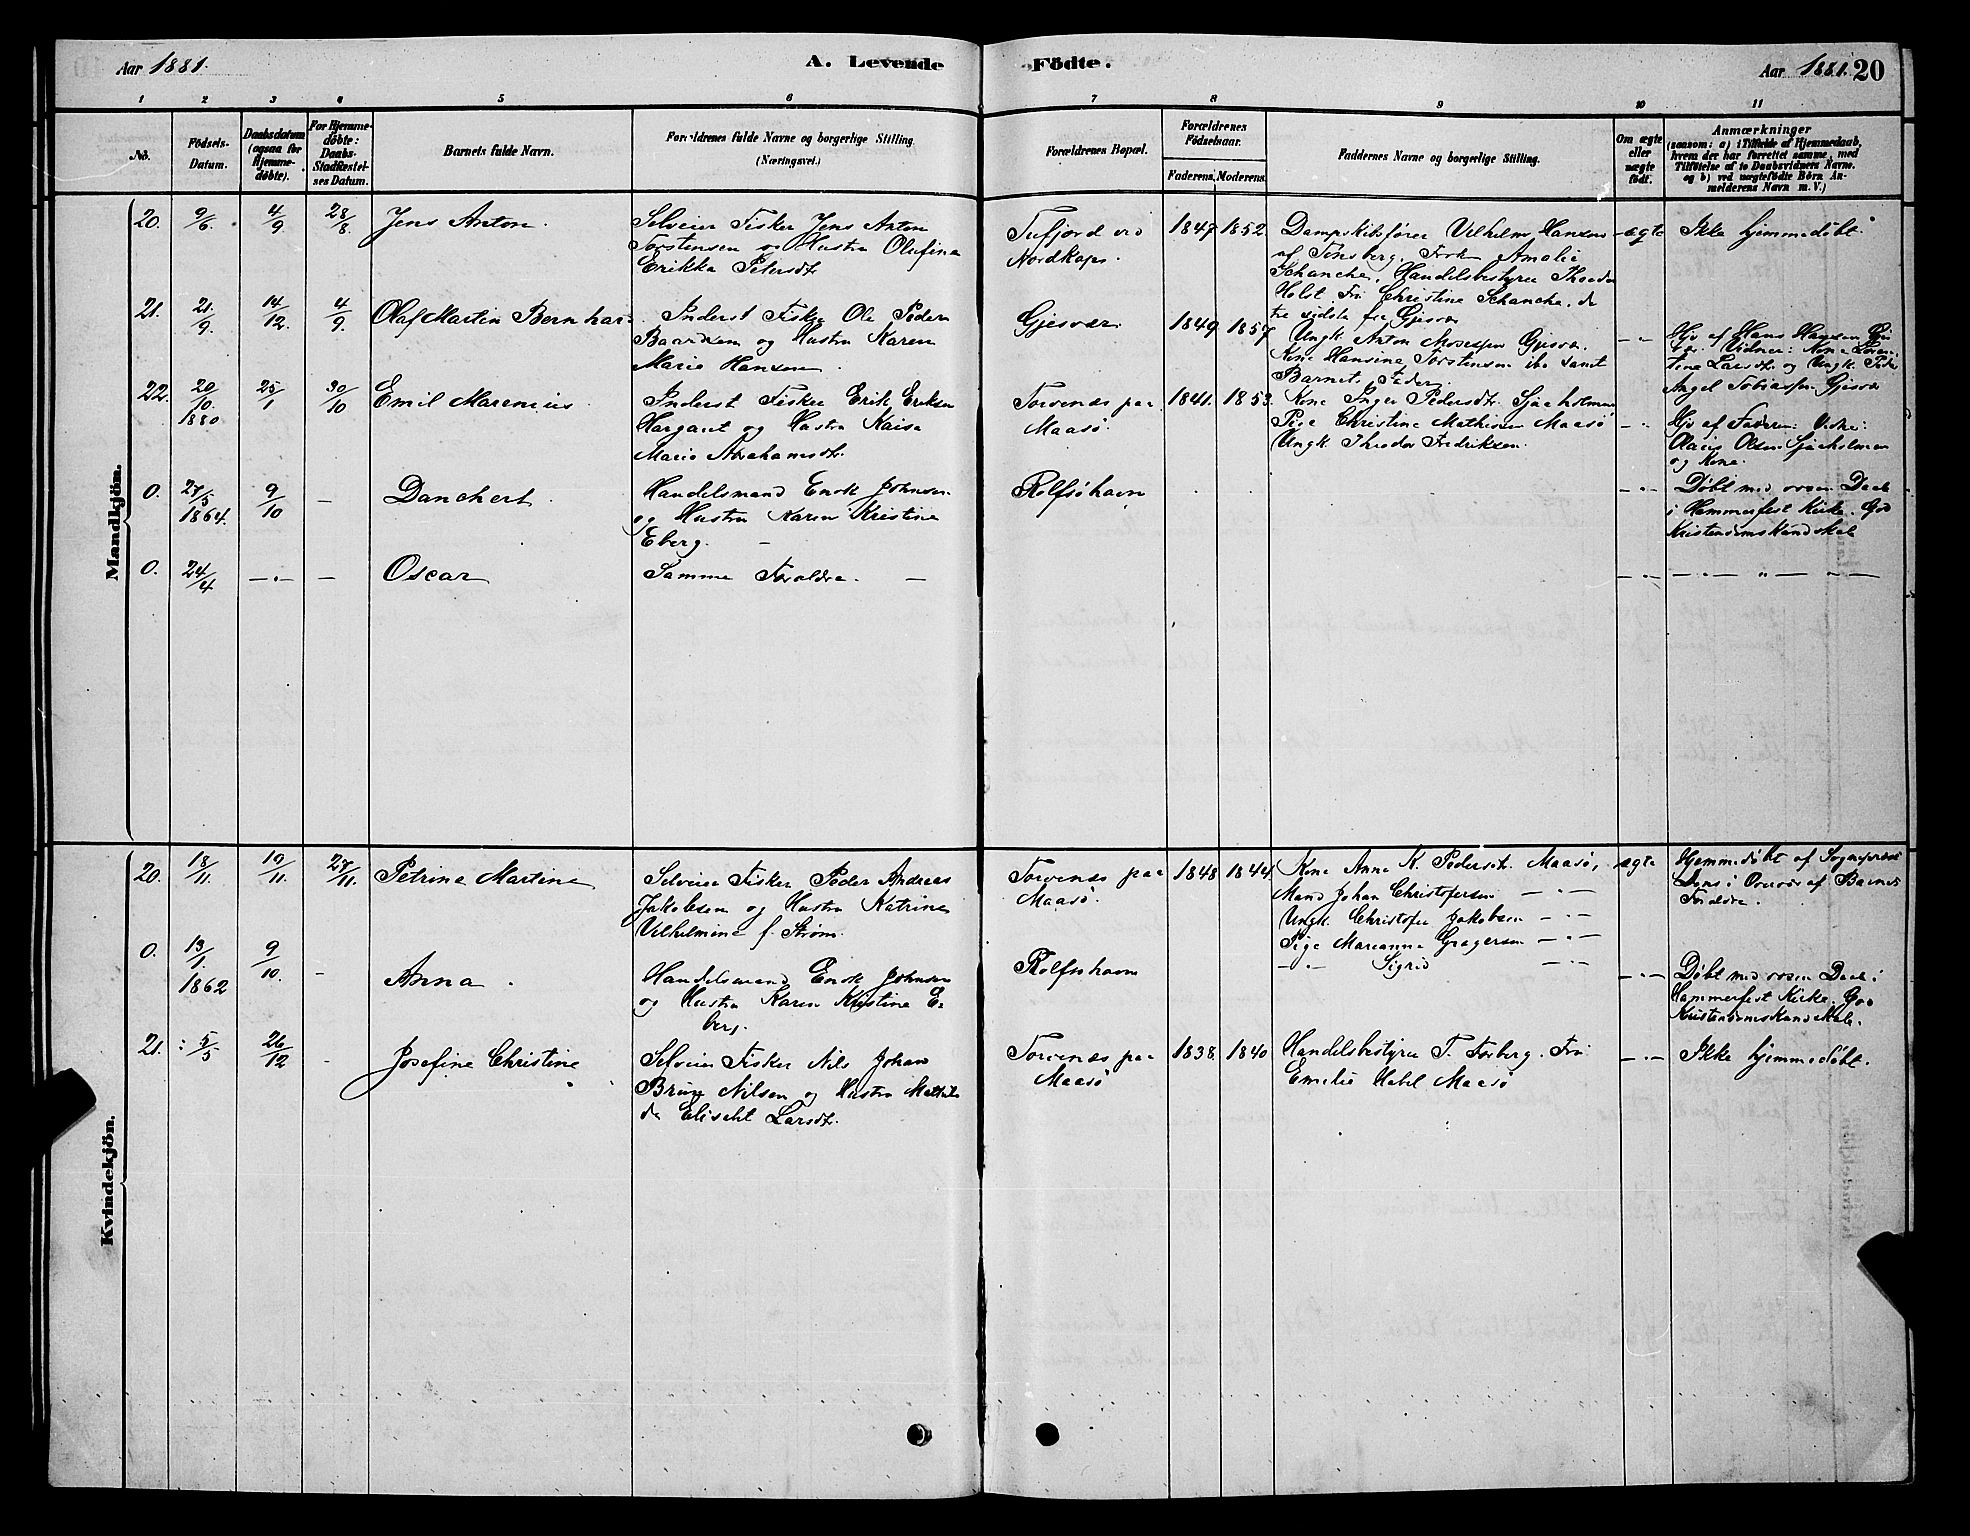 Aar 1881.
A. Levende Födte.
Aar 1881. 20
1 2 3 4 5 6 7 8 9 10 11
No.
Födsels-
Datum.
Daabsdatum
(ogsaa for
Hjemme-
döbte).
For Hjemme-
döbte:
Daabs-
Stadfæstel-
ses Datum.
Barnets fulde Navn.
Forældrenes fulde Navne og borgerlige Stilling.
(Næringsvei.)
Forældrenes Bopæl.
Forældrenes
Födselsaar.
Faderens. Moderens.
Faddernes Navne og borgerlige Stilling.
Om ægte
eller
uægte
födt.
Anmærkninger
(saasom: a) i Tilfælde af Hjemmedaab,
hvem der har forrettet samme, med
Tilföielse af to Daabsvidners Navne,
og b) ved uægtefödte Börn An-
melderens Navn m. V.)
Mandkjön.
20. 9/6 4/9 28/8 Jens Anton.
Selveier Fisker Jens Anton
Torstensen og Hustru Olufine
Erikka Petersdt.
Tufjord ved
Nordkap.
1847 1852
Dampskibsfører Vilhelm Hansen
af Tønsberg. Frk Amalie
Schanche, Handelsbestyrer Theodor
Holst Fru Christine Schanche, de
tre sidste fra Gjesvær
ægte Ikke hjemmedøbt.
21. 21/9 14/12 4/9 Olaf Martin Bernhard
Inderst Fisker Ole Peder
Baardsen og Hustru Karen
Marie Hansen.
Gjesvær.
1849 1857
Ungk. Anton Mosesen Gjesvær.
Kone Hansine Torstensen ibd samt
Barnets Fader.
— " —
Hjd af Hans Hansen
Vidner: Kone
Larsdt. og Ungk. Peder
Angel Tobiassen Gjesvær
22. 20/10 1880 25/1 30/10 Emil Marenius
Inderst Fisker Erik Eriksen
Hargaut og Hustru Kaisa
Maria Abrahamsdt.
Torvenæs paa
Maasø.
1841. 1853.
Kone Inger Pedersdt. Sjaaholmen
Pige Christine Mathisen Maasø
Ungk. Theodor Fredriksen.
— " —
Hjd af Faderen. Vidne:
Olaus Olsen Sjaaholmen
og Kone.
0. 27/5 1864. 9/10 — Danckert.
Handelsmand Enok Johnsen
og Hustru Karen Kristine
Eberg. —
Rolfsøhavn
— " — Døbt med voxen Daab
i Hammerfest Kirke. God
Kristendomskundskab
0. 24/4 — " — — Oscar
Samme Forældre. —
— " — — " — " — " —
Kvindekjön.
20. 18/11. 19/11. 27/11. Petrine Martine
Selveier Fisker Peder Andreas
Jakobsen og Hustru Katrine
Vilhelmine f. Strøm.
Torvenæs paa
Maasø.
1848 1844
Kone Anne K. Pedersdt. Maasø,
Mand Johan Christofersen — " —
Ungk. Christofer Jakobsen — " —
Pige Marianne Gregersen — " —
— " — Sigrid — " —
ægte Hjemmedøbt af Sognepræst
Lons i Overvær af Barnets
Forældre.
0. 13/1. 1862 9/10. — Anna.
Handelsmand Enok Johnsen
og Hustru Karen Kristine E-
berg.
Rolfsøhavn
— " — Døbt med voxen Daab i
Hammerfest Kirke. God
Kristendomskundskab.
21. 5/5 26/12 — Josefine Christine
Selveier Fisker Nils Johan
Brun Nilsen og Hustru Mathil-
de Elisabt Larsdt.
Torvenæs paa
Maasø
1838. 1840
Handelsbestyrer T. Forberg. Fru
Emelie Habel Maasø
— " — Ikke hjemmedøbt.